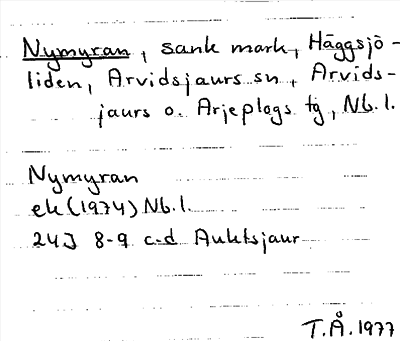 Nymyran, sank mark, Häggsjö-
liden, Arvidsjaurs sn, Arvids-
jaurs o. Arjeplogs tg, Nb. l.
Nymyran
ek (1974) Nb. l.
24J 8-9 c-d Auktsjaur
T.Å. 1977